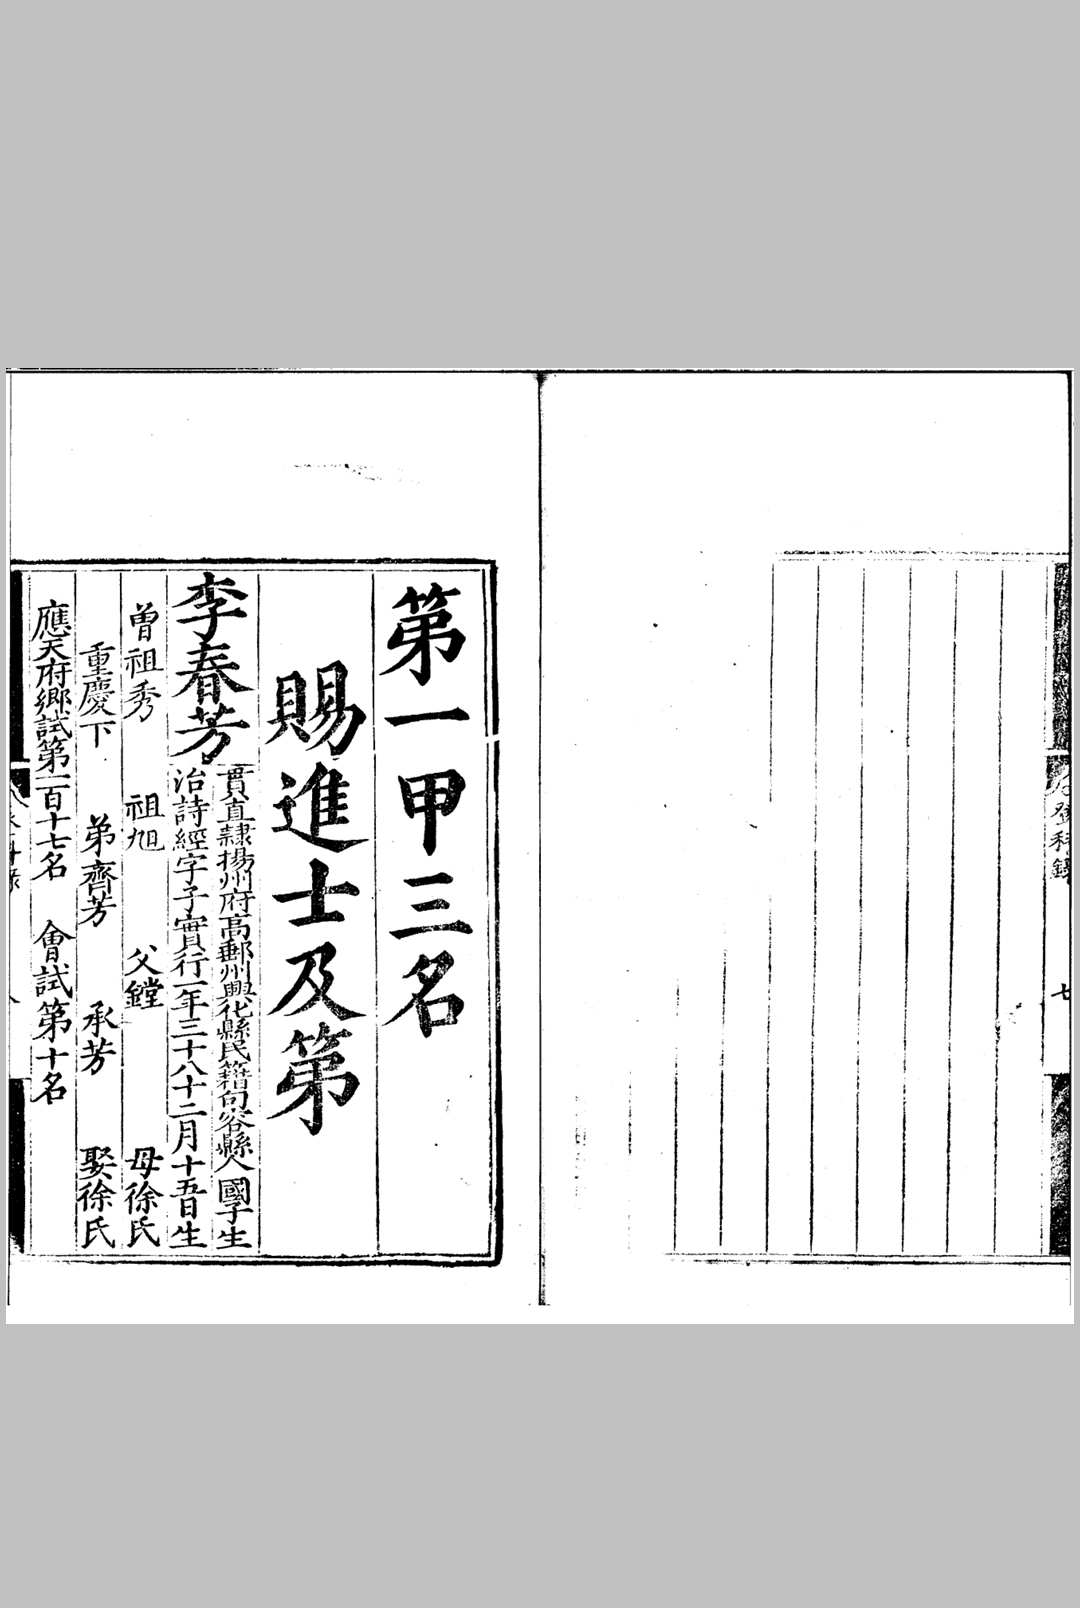 登科錄
七
第一甲三名
賜進士及第
李春芳
貫直隸揚州府高郵州興化縣民籍句容縣人國子生
治詩經字子實行一年三十八十二月十五日生
曾祖秀 祖旭 父鏜 母徐氏
重慶下 弟齊芳 承芳 娶徐氏
應天府鄉試第一百十七名 會試第十名